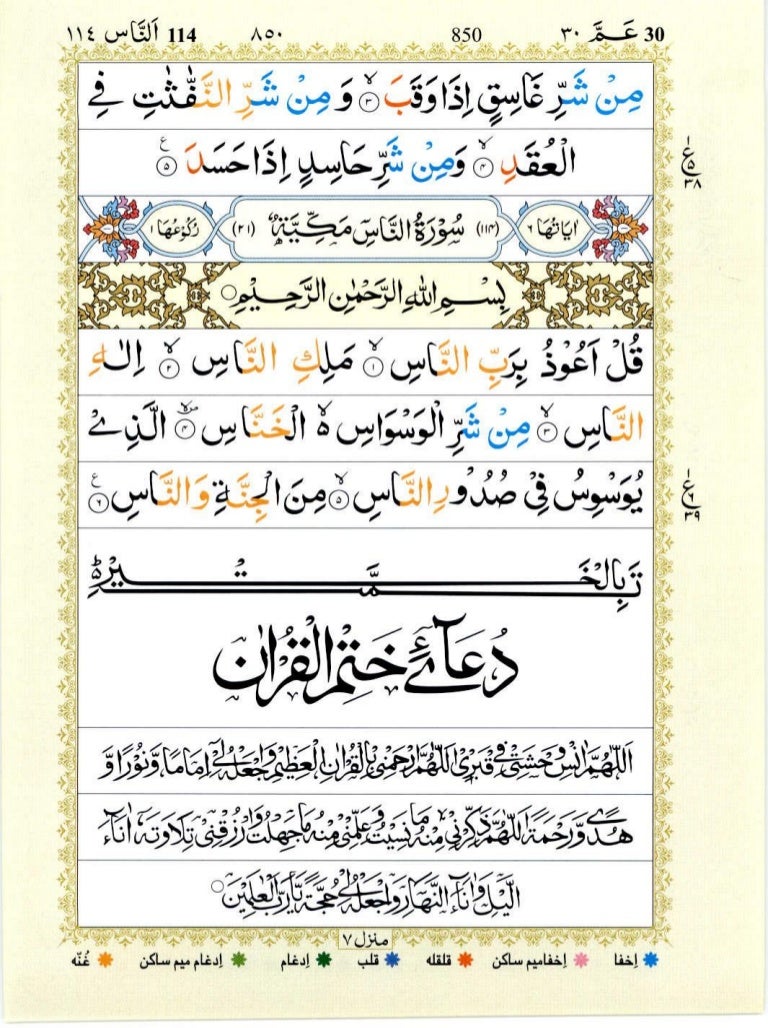 30 عَـمَّ ٣٠ 850 ٨٥٠ 114 اَلنَّاس ١١٤
مِنْ شَـرِّ غَاسِقٍ اِذَا وَقَبَ ۙ﴿۳﴾ وَ مِنْ شَـرِّ النَّفّٰثٰتِ فِي
الْعُقَدِ ۙ﴿۴﴾ وَمِنْ شَرِّ حَاسِدٍ اِذَا حَسَدَ ﴿۵﴾
ع ۵ ٣٨
اٰيَاتُهَا ٦ (١١٤) سُوْرَةُ النَّاسِ مَكِّيَّةٌ (٢١) رُكُوْعُهَا ١
بِسْمِ اللّٰهِ الرَّحْمٰنِ الرَّحِيْمِ
قُلْ اَعُوْذُ بِرَبِّ النَّاسِ ۙ﴿۱﴾ مَلِكِ النَّاسِ ۙ﴿۲﴾ اِلٰهِ
النَّاسِ ۙ﴿۳﴾ مِنْ شَـرِّ الْوَسْوَاسِ ۙ۬ الْخَنَّاسِ ۙ﴿۴﴾ الَّذِيْ
يُوَسْوِسُ فِيْ صُدُوْرِ النَّاسِ ۙ﴿۵﴾ مِنَ الْجِنَّةِ وَالنَّاسِ ﴿۶﴾
ع ٦ ٣٩
تَمَّتْ بِالْخَيْرِ
دُعَآئے خَتْمِ الْقُرْاٰن
اَللّٰهُمَّ اٰنِسْ وَحْشَتِيْ فِيْ قَبْرِيْ اَللّٰهُمَّ ارْحَمْنِيْ بِالْقُرْاٰنِ الْعَظِيْمِ وَاجْعَلْهُ لِيْ اِمَامًا وَّنُوْرًا وَّ
هُدًى وَّرَحْمَةً اَللّٰهُمَّ ذَكِّرْنِيْ مِنْهُ مَا نَسِيْتُ وَعَلِّمْنِيْ مِنْهُ مَا جَهِلْتُ وَارْزُقْنِيْ تِلَاوَتَهٗ اٰنَآءَ
الَّيْلِ وَاٰنَآءَ النَّهَارِ وَاجْعَلْهُ لِيْ حُجَّةً يَّا رَبَّ الْعٰلَمِيْنَ
منزل ٧
اِخفا اِخفامیم ساکن قلقله قلب اِدغام اِدغام میم ساکن غُنّه